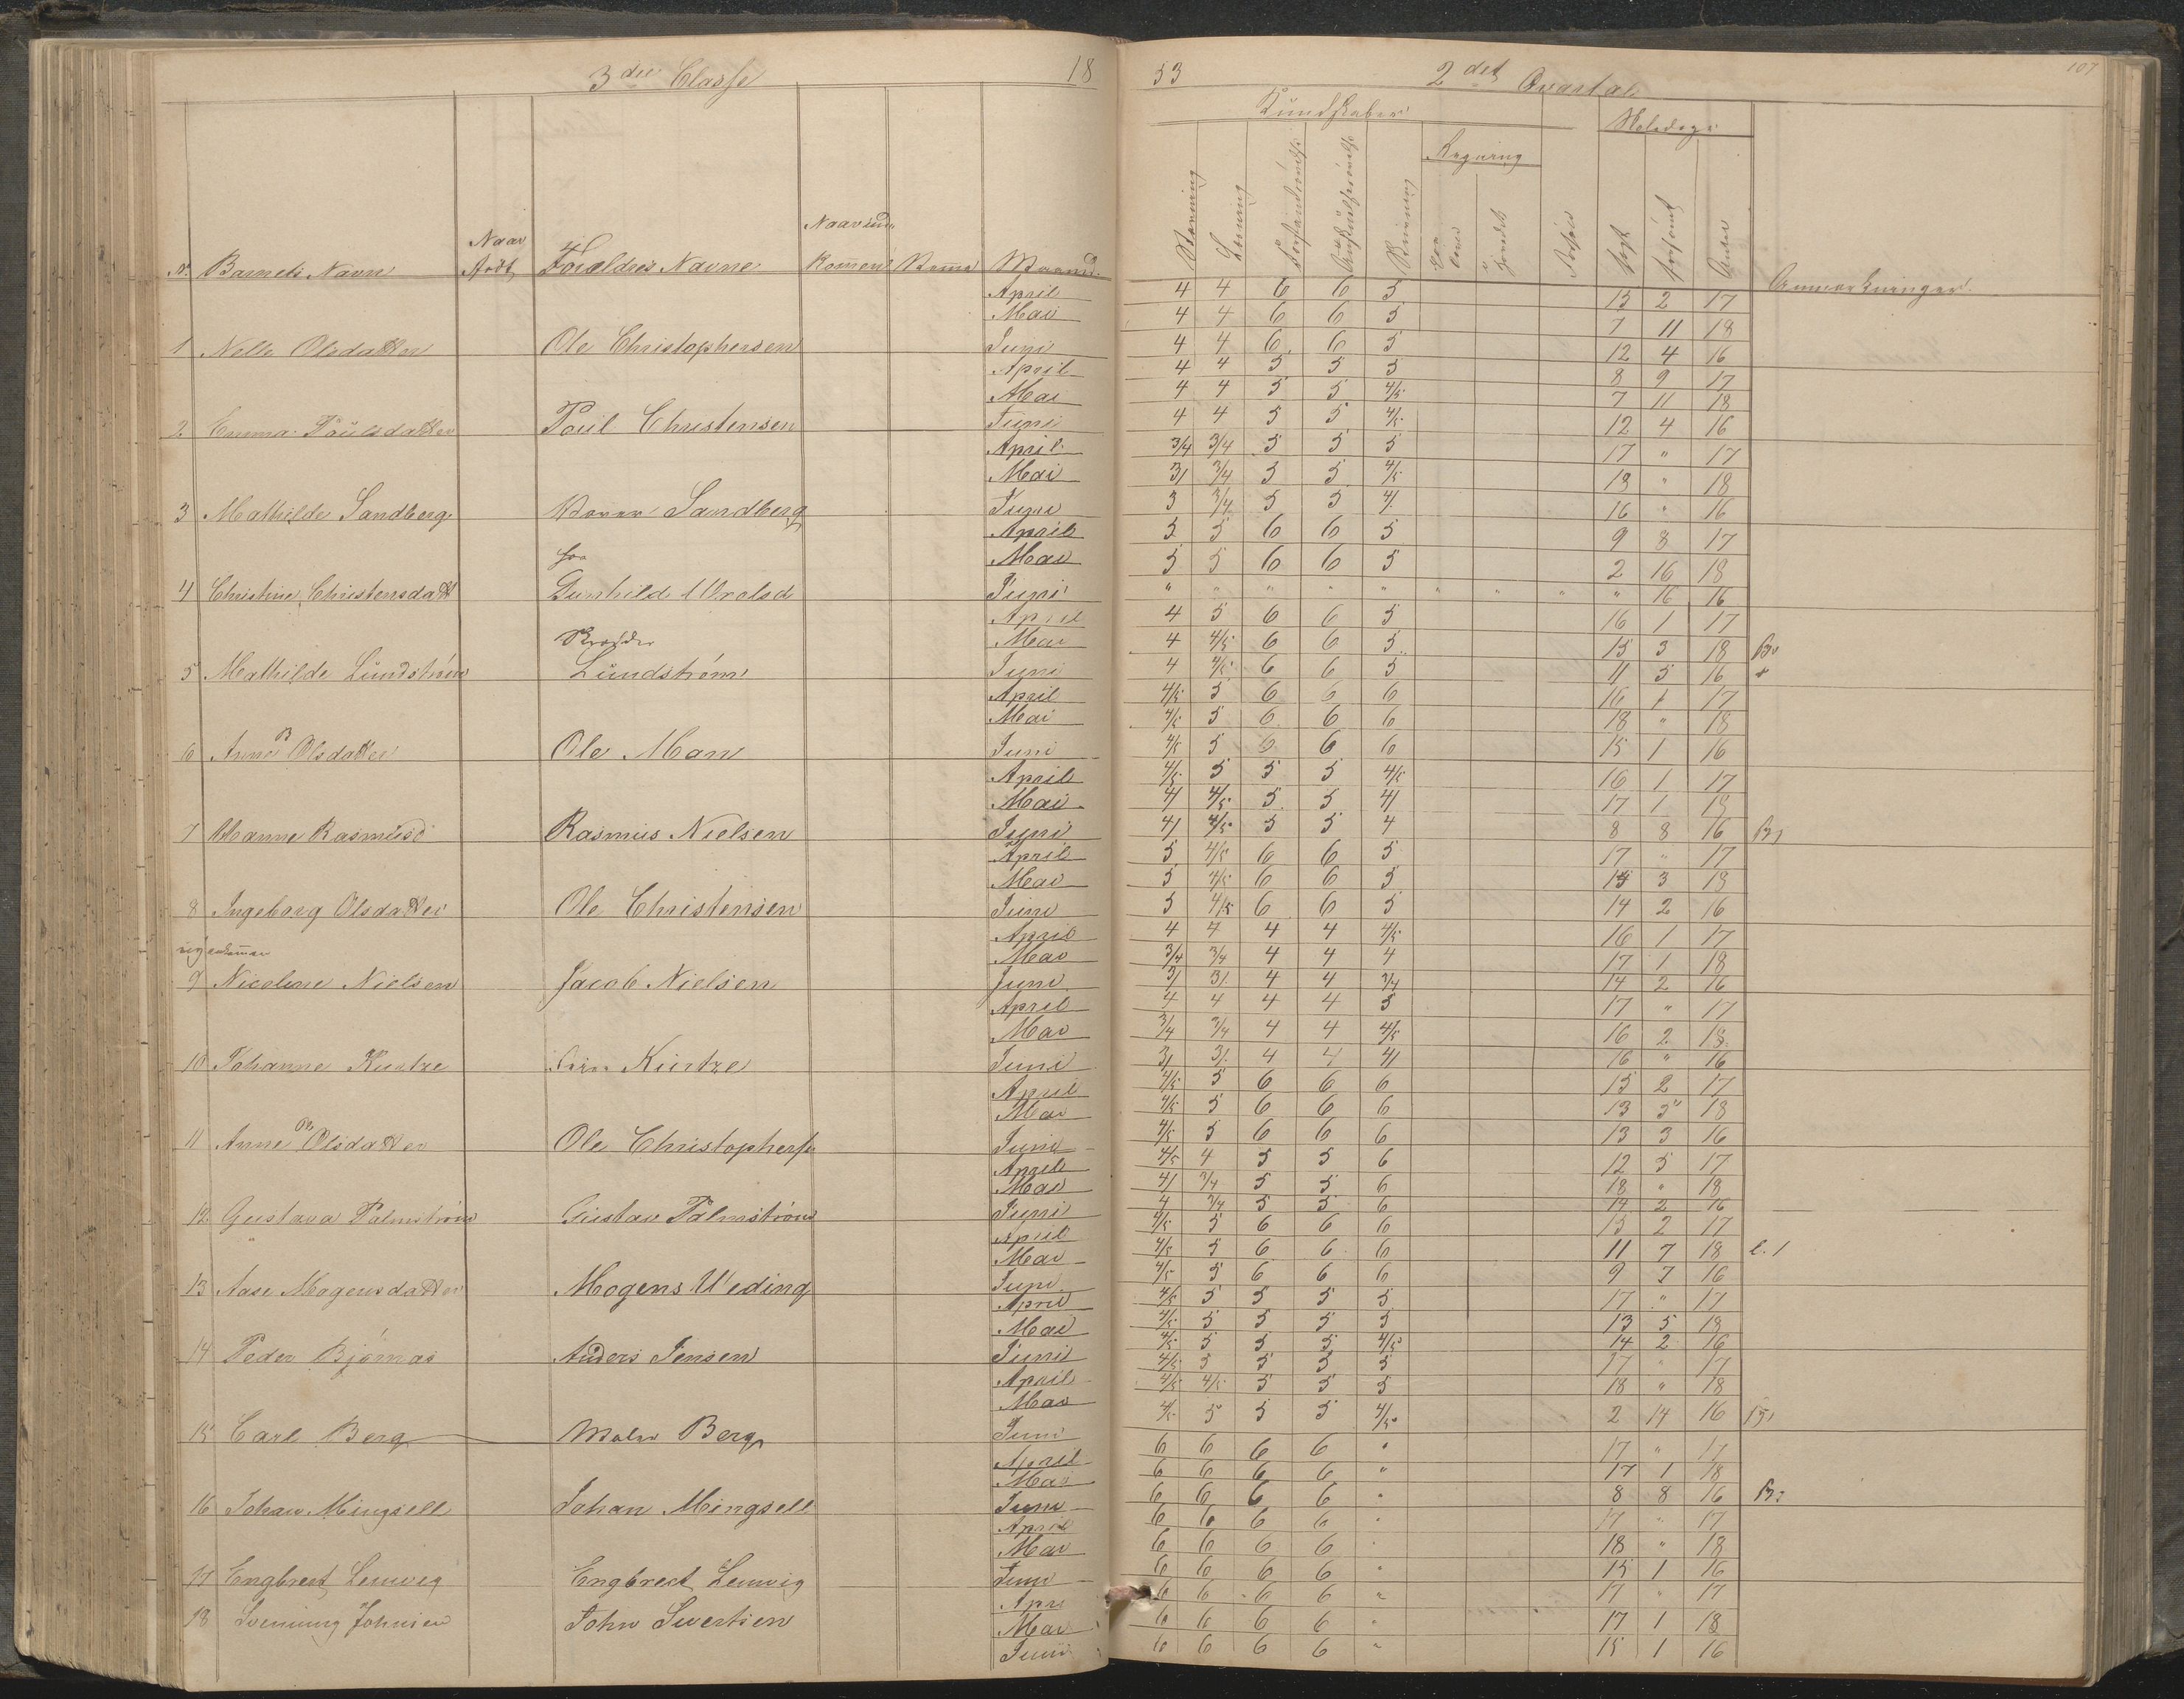 3die Classe 18
53 2det Qvartal 107
Kundskaber Skoledage
Regning
Naar ind
Naar
No Barnets Navn Født Forældres Navne Kommen Maaned
Stavning Læsning Skrivning søgt forsømt Antal Anmærkninger
April 4 4 6 6 5 15 2 17
Mai 4 4 6 6 5 7 11 18
1 Nelle Olsdatter Ole Christophersen Juni 4 4 6 6 5 12 4 16
April 4 4 5 5 5 8 9 17
Mai 4 4 5 5 4/5 7 11 18
2 Emma Poulsdatter Poul Christensen Juni 4 4 5 5 4/5 12 4 16
April 3/4 3/4 5 5 5 17 " 17
Mai 3/ 3/4 5 5 4/5 18 " 18
3 Mathilde Sandberg Sandberg Juni 3 3/4 5 5 4/ 16 " 16
April 5 5 6 6 5 9 8 17
for
Mai 5 5 6 6 5 2 16 18
4 Christine Christensdatt Gunhild Juni " " " " " " " " " 16 16
April 4 5 6 6 5 16 1 17
Mai 4 4/5 6 6 5 15 3 18
5 Mathilde Lundstrøm Lundstrøm Juni 4 4/5 6 6 5 11 5 16
April 4/5 5 6 6 6 16 1 17
Mai 4/5 5 6 6 6 18 " 18
6 Anne B Olsdatter Ole Juni 4/5 5 6 6 6 15 1 16
April 4/5 5 5 5 4/5 16 1 17
Mai 4/ 4/5 5 5 4/ 17 1 18
7 Hanne Rasmusd Rasmus Nielsen Juni 4/ 4/5 5 5 4 8 8 16
April 5 4/5 6 6 5 17 " 17
Mai 5 4/5 6 6 5 15 3 18
8 Ingeborg Olsdatter Ole Christensen Juni 5 4/5 6 6 5 14 2 16
April 4 4 4 4 4/5 16 1 17
Mai 3/4 3/4 4 4 4 17 1 18
9 Nicoline Nielsen Jacob Nielsen Juni 3/ 3/ 4 4 3/4 14 2 16
April 4 4 4 4 5 17 " 17
Mai 3/4 3/4 4 4 4/5 16 2 18
10 Johanne Kurtze Kurtze Juni 3/ 3/ 4 4 4/ 16 " 16
April 4/5 5 6 6 6 15 2 17
Mai 4/5 5 6 6 6 13 5 18
11 Anne Olsdatter Ole Christophers Juni 4/5 5 6 6 6 13 3 16
April 4/5 4 5 5 6 12 5 17
Mai 4/ 3/4 5 5 6 18 " 18
12 Gustava Palmstrøm Gustav Palmstrøm Juni 4 3/4 5 5 6 14 2 16
April 4/5 5 6 6 6 15 2 17
Mai 4/5 5 6 6 6 11 7 18
13 Aase Mogensdatter Mogens Ueding Juni 4/5 5 6 6 6 9 7 16
April 4/5 5 5 5 5 17 " 17
Mai 4/5 5 5 5 5 13 5 18
14 Peder Bjørnaas Anders Jensen Juni 4/5 5 5 5 4/5 14 2 16
April 4/5 5 5 5 5 17 " 17
Mai 4/5 4/5 5 5 5 18 " 18
15 Carl Berg Berg Juni 4/5 5 5 5 4/5 2 14 16
April 6 6 6 6 " 17 " 17
Mai 6 6 6 6 " 17 1 18
16 Johan Mingsell Johan Mingsell Juni 6 6 6 6 " 8 8 16
April 6 6 6 6 " 17 " 17
Mai 6 6 6 6 " 18 " 18
17 Engbrect Lemvig Engbrect Lemvig Juni 6 6 6 6 " 15 1 16
Apri 6 6 6 6 " 17 " 17
18 Svenning Johnsen John Swertsen Mai 6 6 6 6 " 17 1 18
Juni 6 6 6 6 " 15 1 16